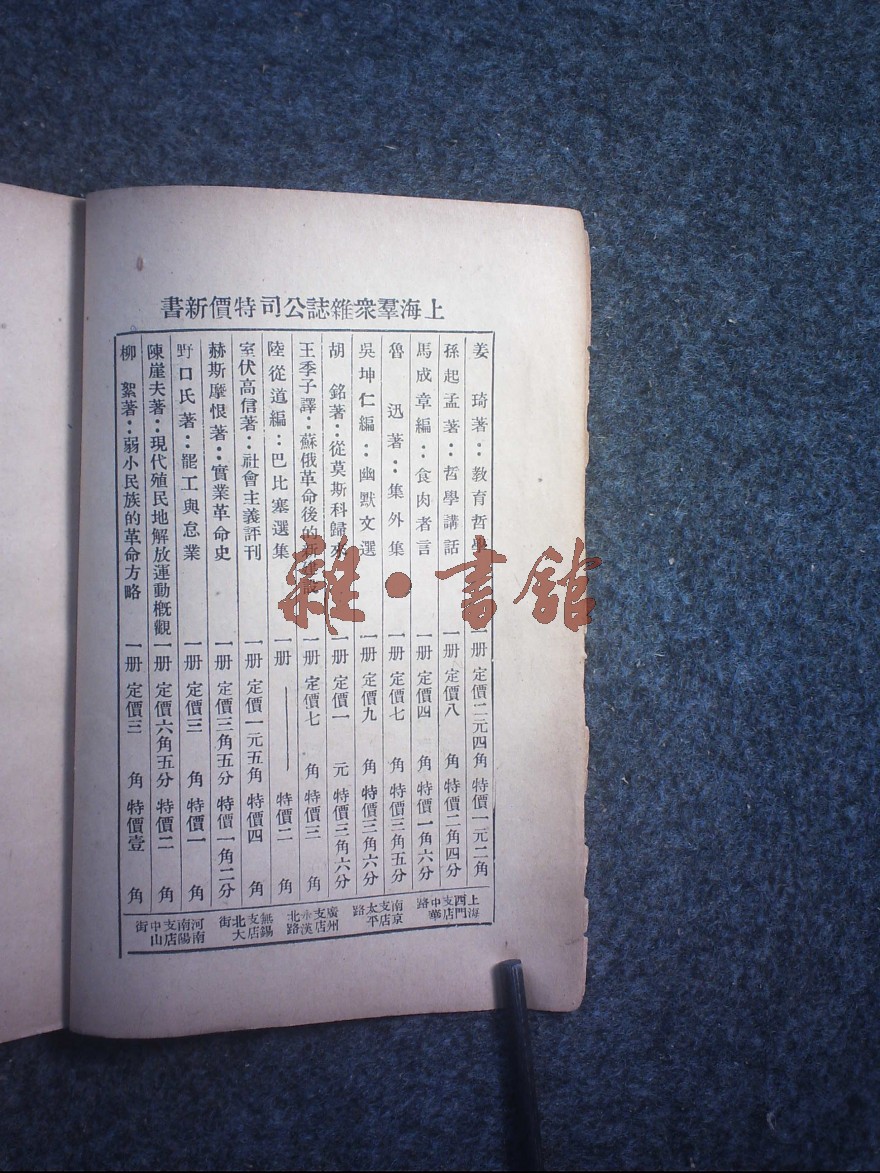 上海羣衆雜誌公司特價新書
姜琦著：教育哲學 一册 定價二元四角 特價一元二角
孫起孟著：哲學講話 一册 定價八角 特價二角四分
馬成章編：食肉者言 一册 定價四角 特價一角六分
魯迅著：集外集 一册 定價七角 特價三角五分
吳坤仁編：幽默文選 一册 定價九角 特價三角六分
胡銘著：從莫斯科歸來 一册 定價一元 特價三角六分
王季子譯：蘇俄革命後的新建設 一册 定價七角 特價三角
陸從道編：巴比塞選集 一册 —— 特價二角
室伏高信著：社會主義評刊 一册 定價一元五角 特價四角
赫斯摩恨著：實業革命史 一册 定價三角五分 特價一角二分
野口氏著：罷工與怠業 一册 定價三角 特價一角
陳崖夫著：現代殖民地解放運動概觀 一册 定價六角五分 特價二角
柳絮著：弱小民族的革命方略 一册 定價三角 特價壹角
上海西門支店中華路
南京支店太平路
廣州支店永漢北路
無錫支店北大街
河南南陽支店中山街
雜·書館